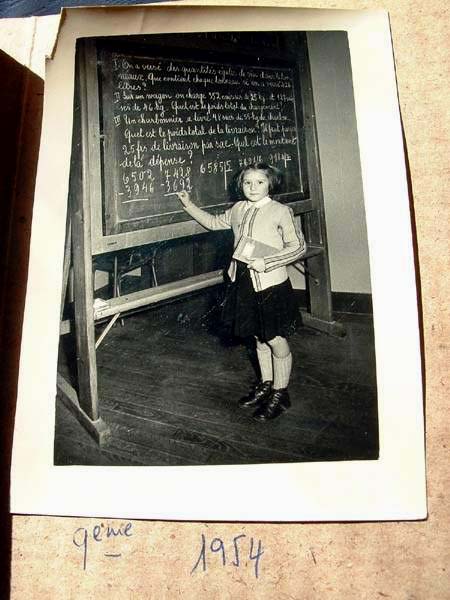 I. On a versé des quantités égales de vin dans
neaux. Que contient chaque tonneau
litres?
II Sur un wagon on charge 352 caisses de kg et
de 46 kg. Quel est le poids total du chargement?
III Un charbonnier a livré 48 sacs de 55 kg de charbon.
Quel est le poids total de la livraison? Il faut payer
25 frs de livraison par sac. Quel est le montant
de la dépense?
6502 7428 6585
- 3946 - 3692
9ème 1954